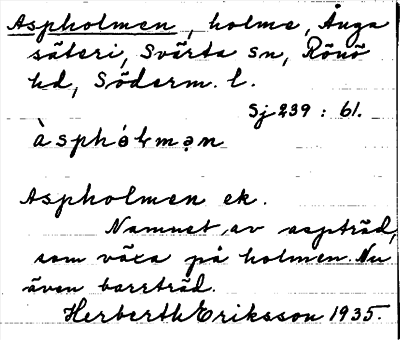 Aspholmen, holme, Ånga
säteri, Svärta sn, Rönö
hd, Söderm. l.
Sj 239 : 61.
àsphól̵mən
Aspholmen ek.
Namnet av aspträd,
som växa på holmen. Nu
även barrträd.
Herberth Eriksson 1935.